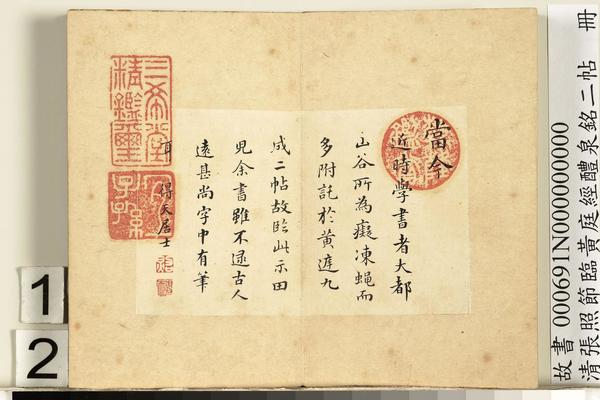 當今
近時學書者大都
山谷所為癡凍蠅而
多附託於黃庭九
成二帖故臨此示田
兒余書雖不逮古人
遠甚尚字中有筆
耳 得天居士
三希堂精鑑璽
宜子孫
1
2
故書 000691N000000000
清張照節臨黃庭經醴泉銘二帖 冊